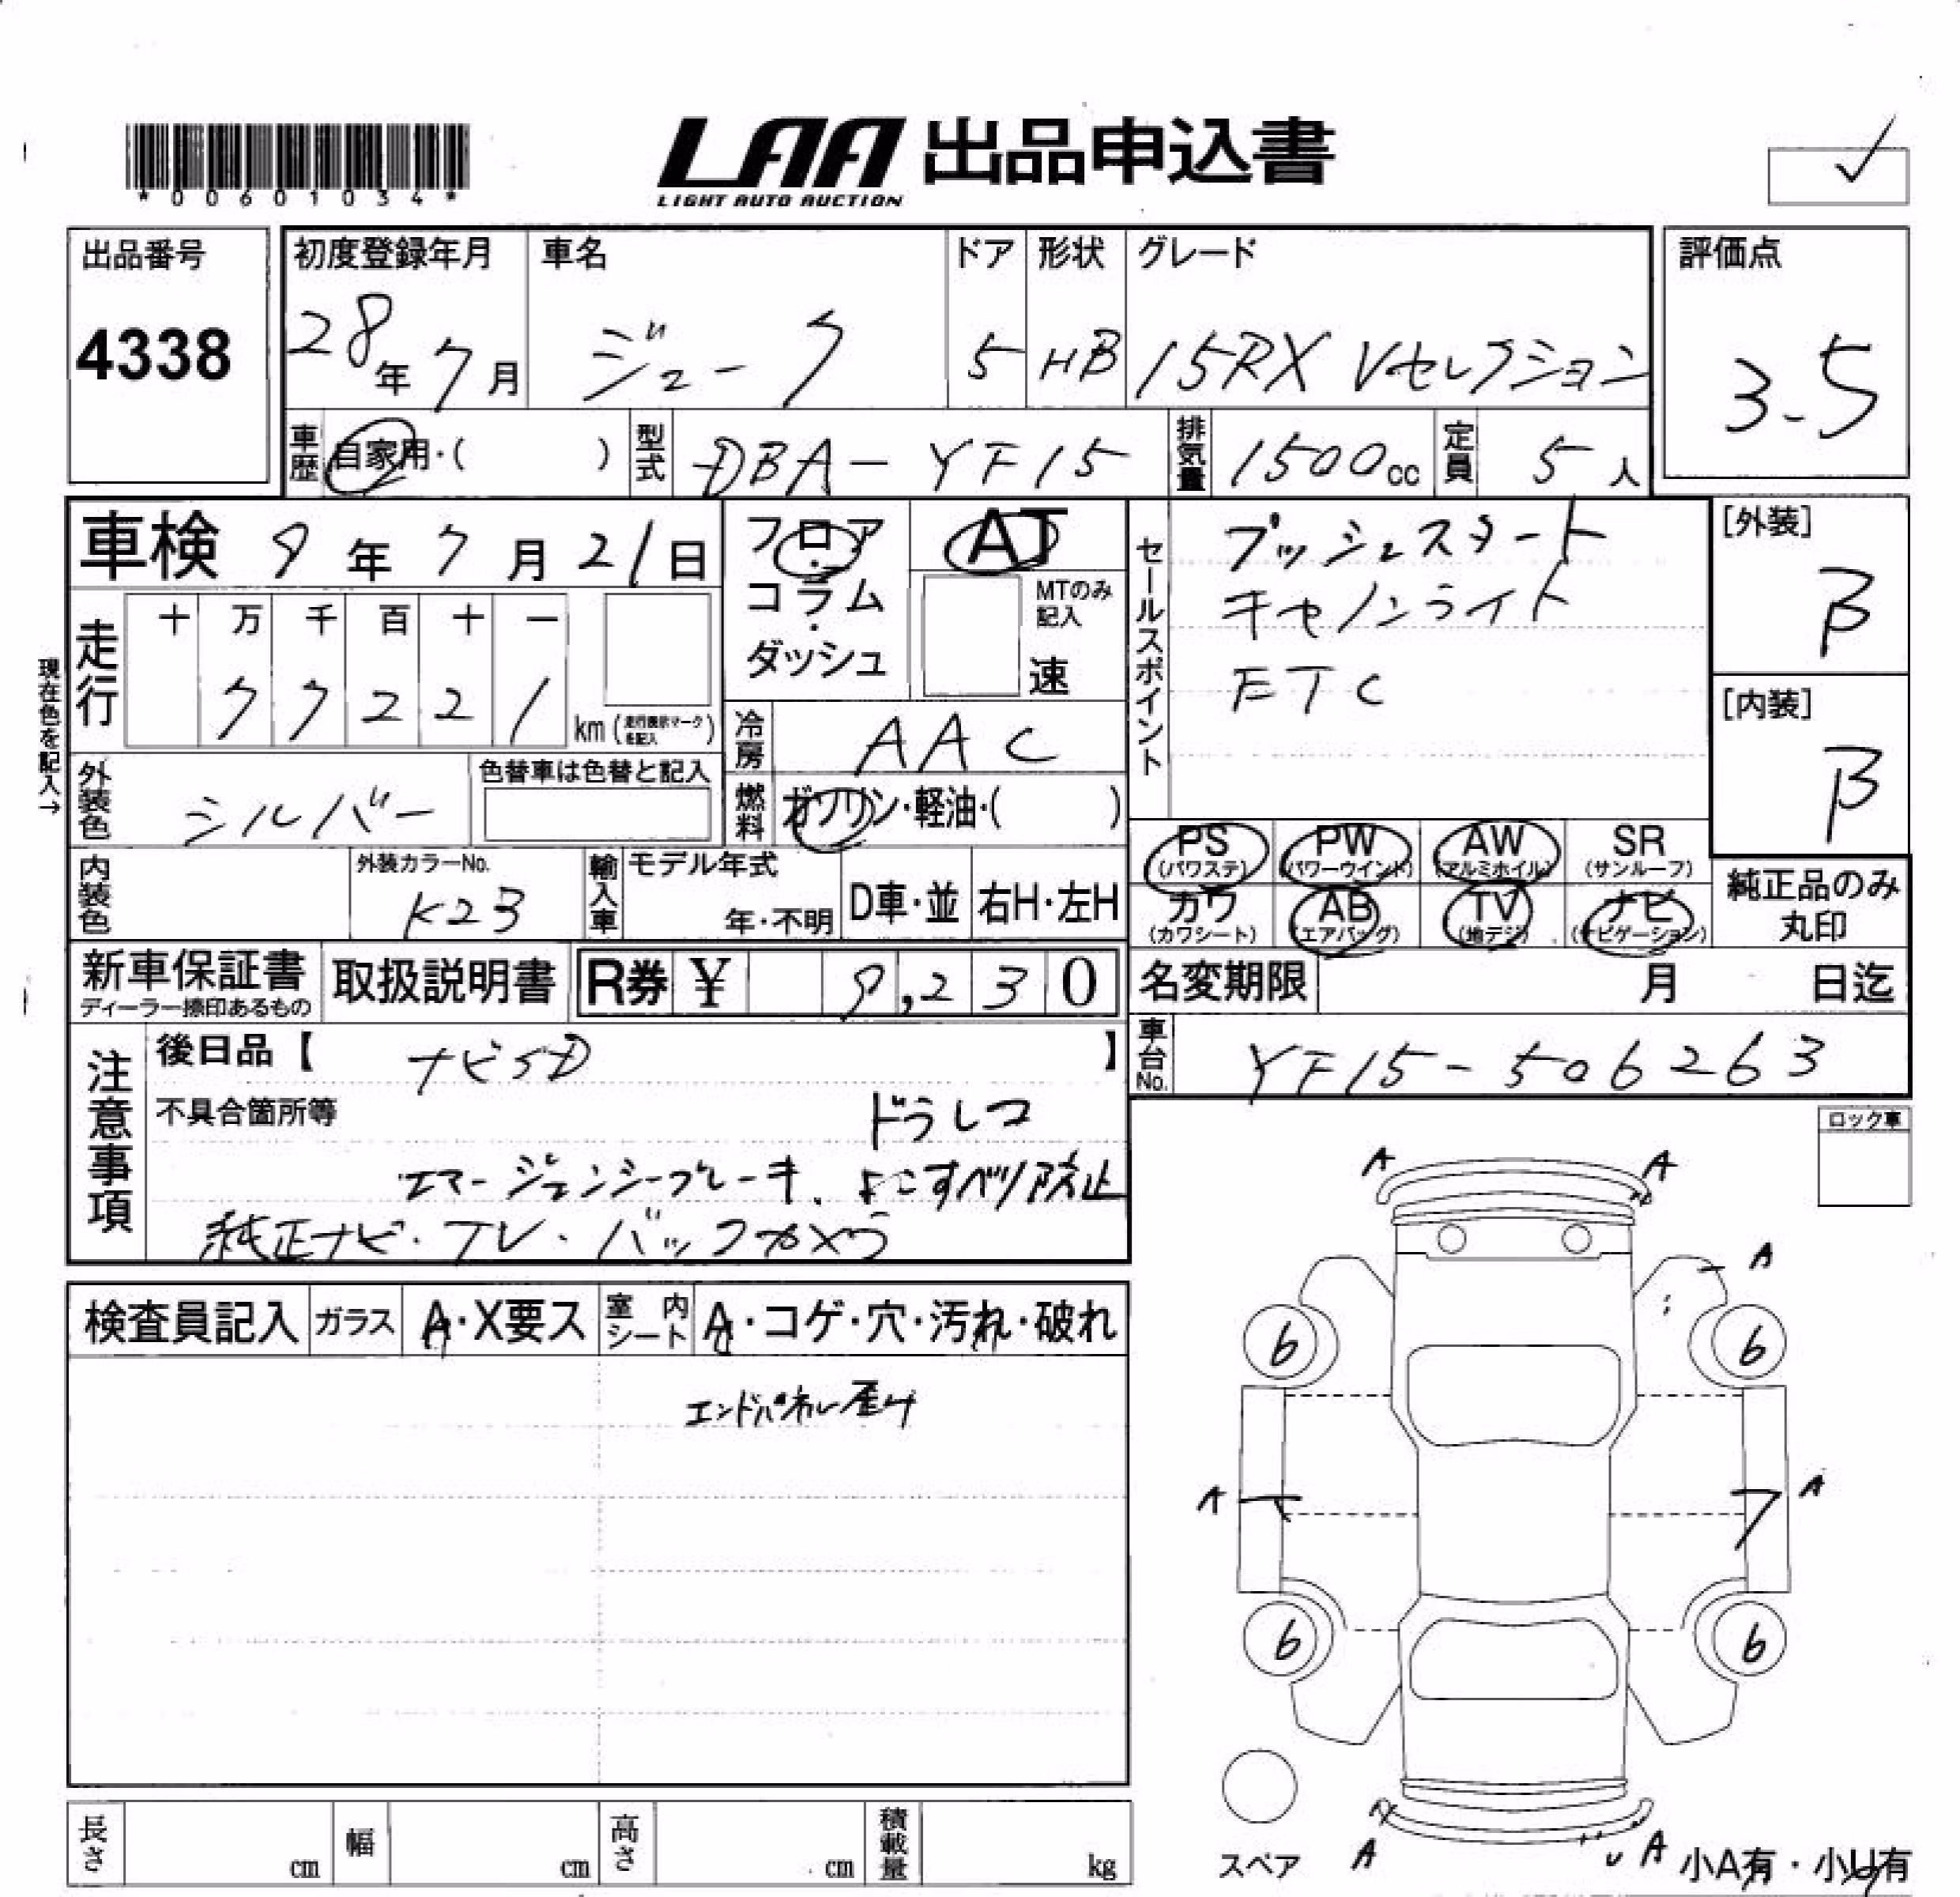 *00601034*
LAA 出品申込書
LIGHT AUTO AUCTION
出品番号
4338
初度登録年月
28年 7月
車名
ジューク
ドア
5
形状
HB
グレード
15RX Vセレクション
評価点
3.5
車歴 自家用・( )
型式 DBA-YF15
排気量 1500cc
定員 5人
車検 9年 7月 21日
走行
十 万 千 百 十 一
7 7 2 2 1 km(走行表示マークを記入)
現在色を記入→
フロア・コラム・ダッシュ
AT
MTのみ記入
速
セールスポイント
プッシュスタート
キセノンライト
ETC
[外装]
B
[内装]
B
冷房 AAC
外装色 シルバー
色替車は色替と記入
燃料 ガソリン・軽油・( )
PS(パワステ) PW(パワーウインド) AW(アルミホイル) SR(サンルーフ)
カワ(カワシート) AB(エアバッグ) TV(地デジ) ナビ(ナビゲーション)
純正品のみ丸印
内装色
外装カラーNo.
K23
輸入車
モデル年式
年・不明
D車・並
右H・左H
新車保証書
ディーラー捺印あるもの
取扱説明書
R券 ¥ 9,230
名変期限 月 日迄
車台No. YF15-506263
注意事項
後日品【 ナビSD 】
不具合箇所等
ドラレコ
エマージェンシーブレーキ、よこすべり防止
純正ナビ・TV・バックカメラ
ロック車
検査員記入
ガラス A・X要ス
室内シート A・コゲ・穴・汚れ・破れ
エンドパネル歪み
A A
A
6 6
A A
6 6
スペア
A A
小A有・小U有
長さ cm
幅 cm
高さ cm
積載量 kg